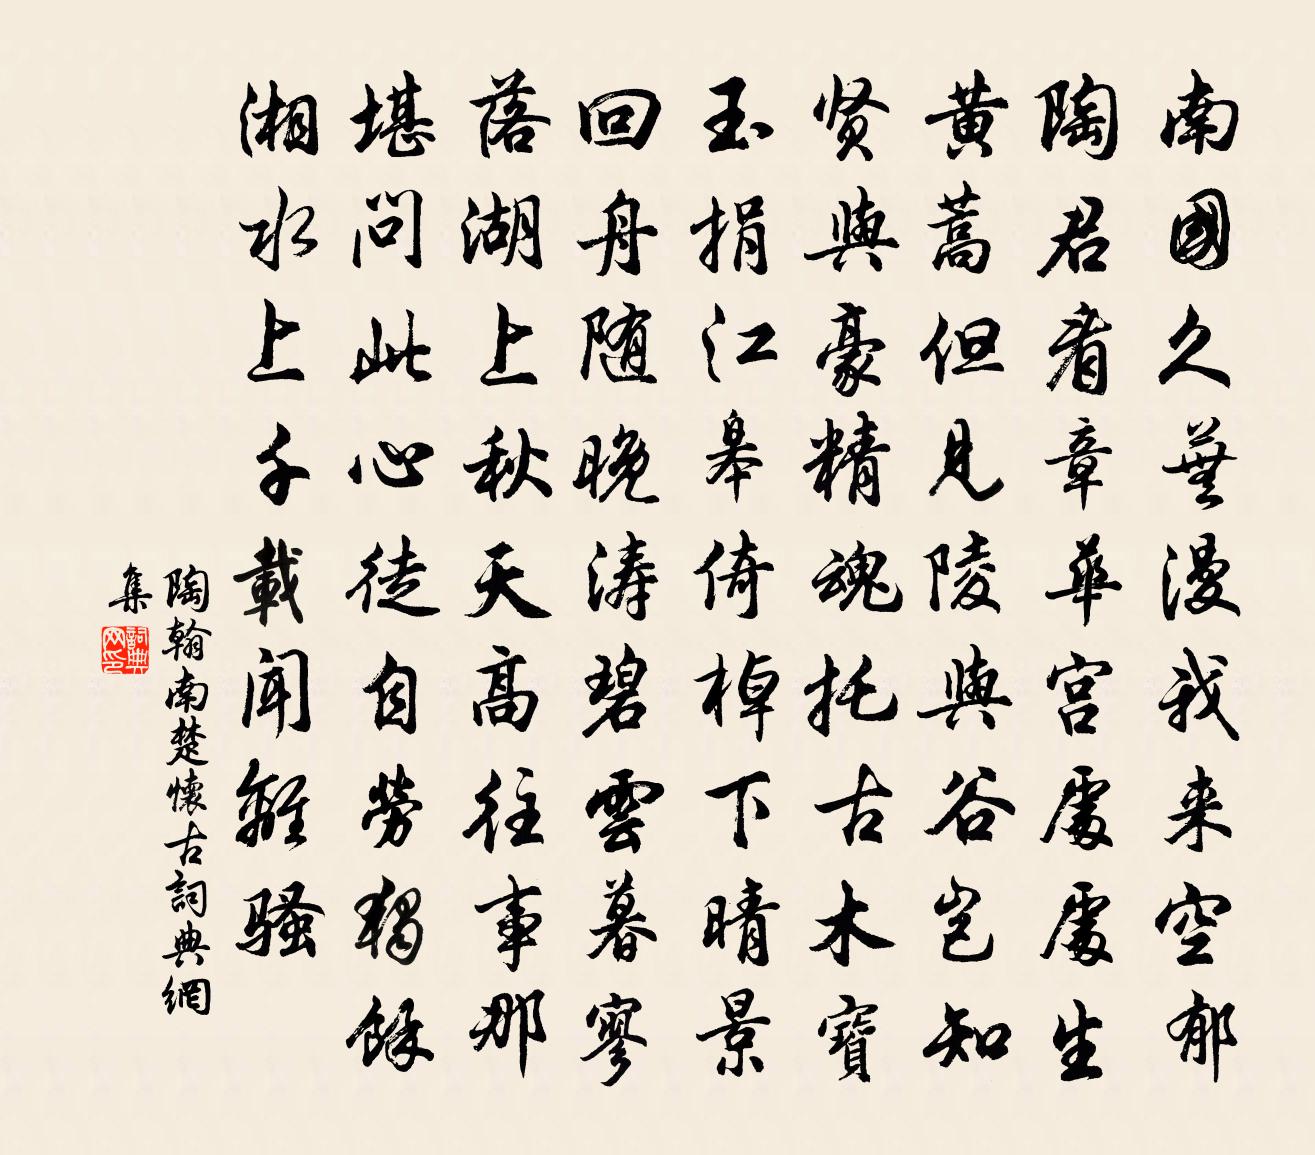 南國久蕪漫我来空郁
陶君看章華宮處處生
黃蒿但見陵與谷豈知
賢與豪精魂托古木寶
玉捐江皋倚棹下晴景
回舟随晚濤碧雲暮寥
落湖上秋天高往事那
堪問此心徒自勞獨餘
湘水上千載聞離騷
陶翰南楚懷古詞典網
集
詞典
网印